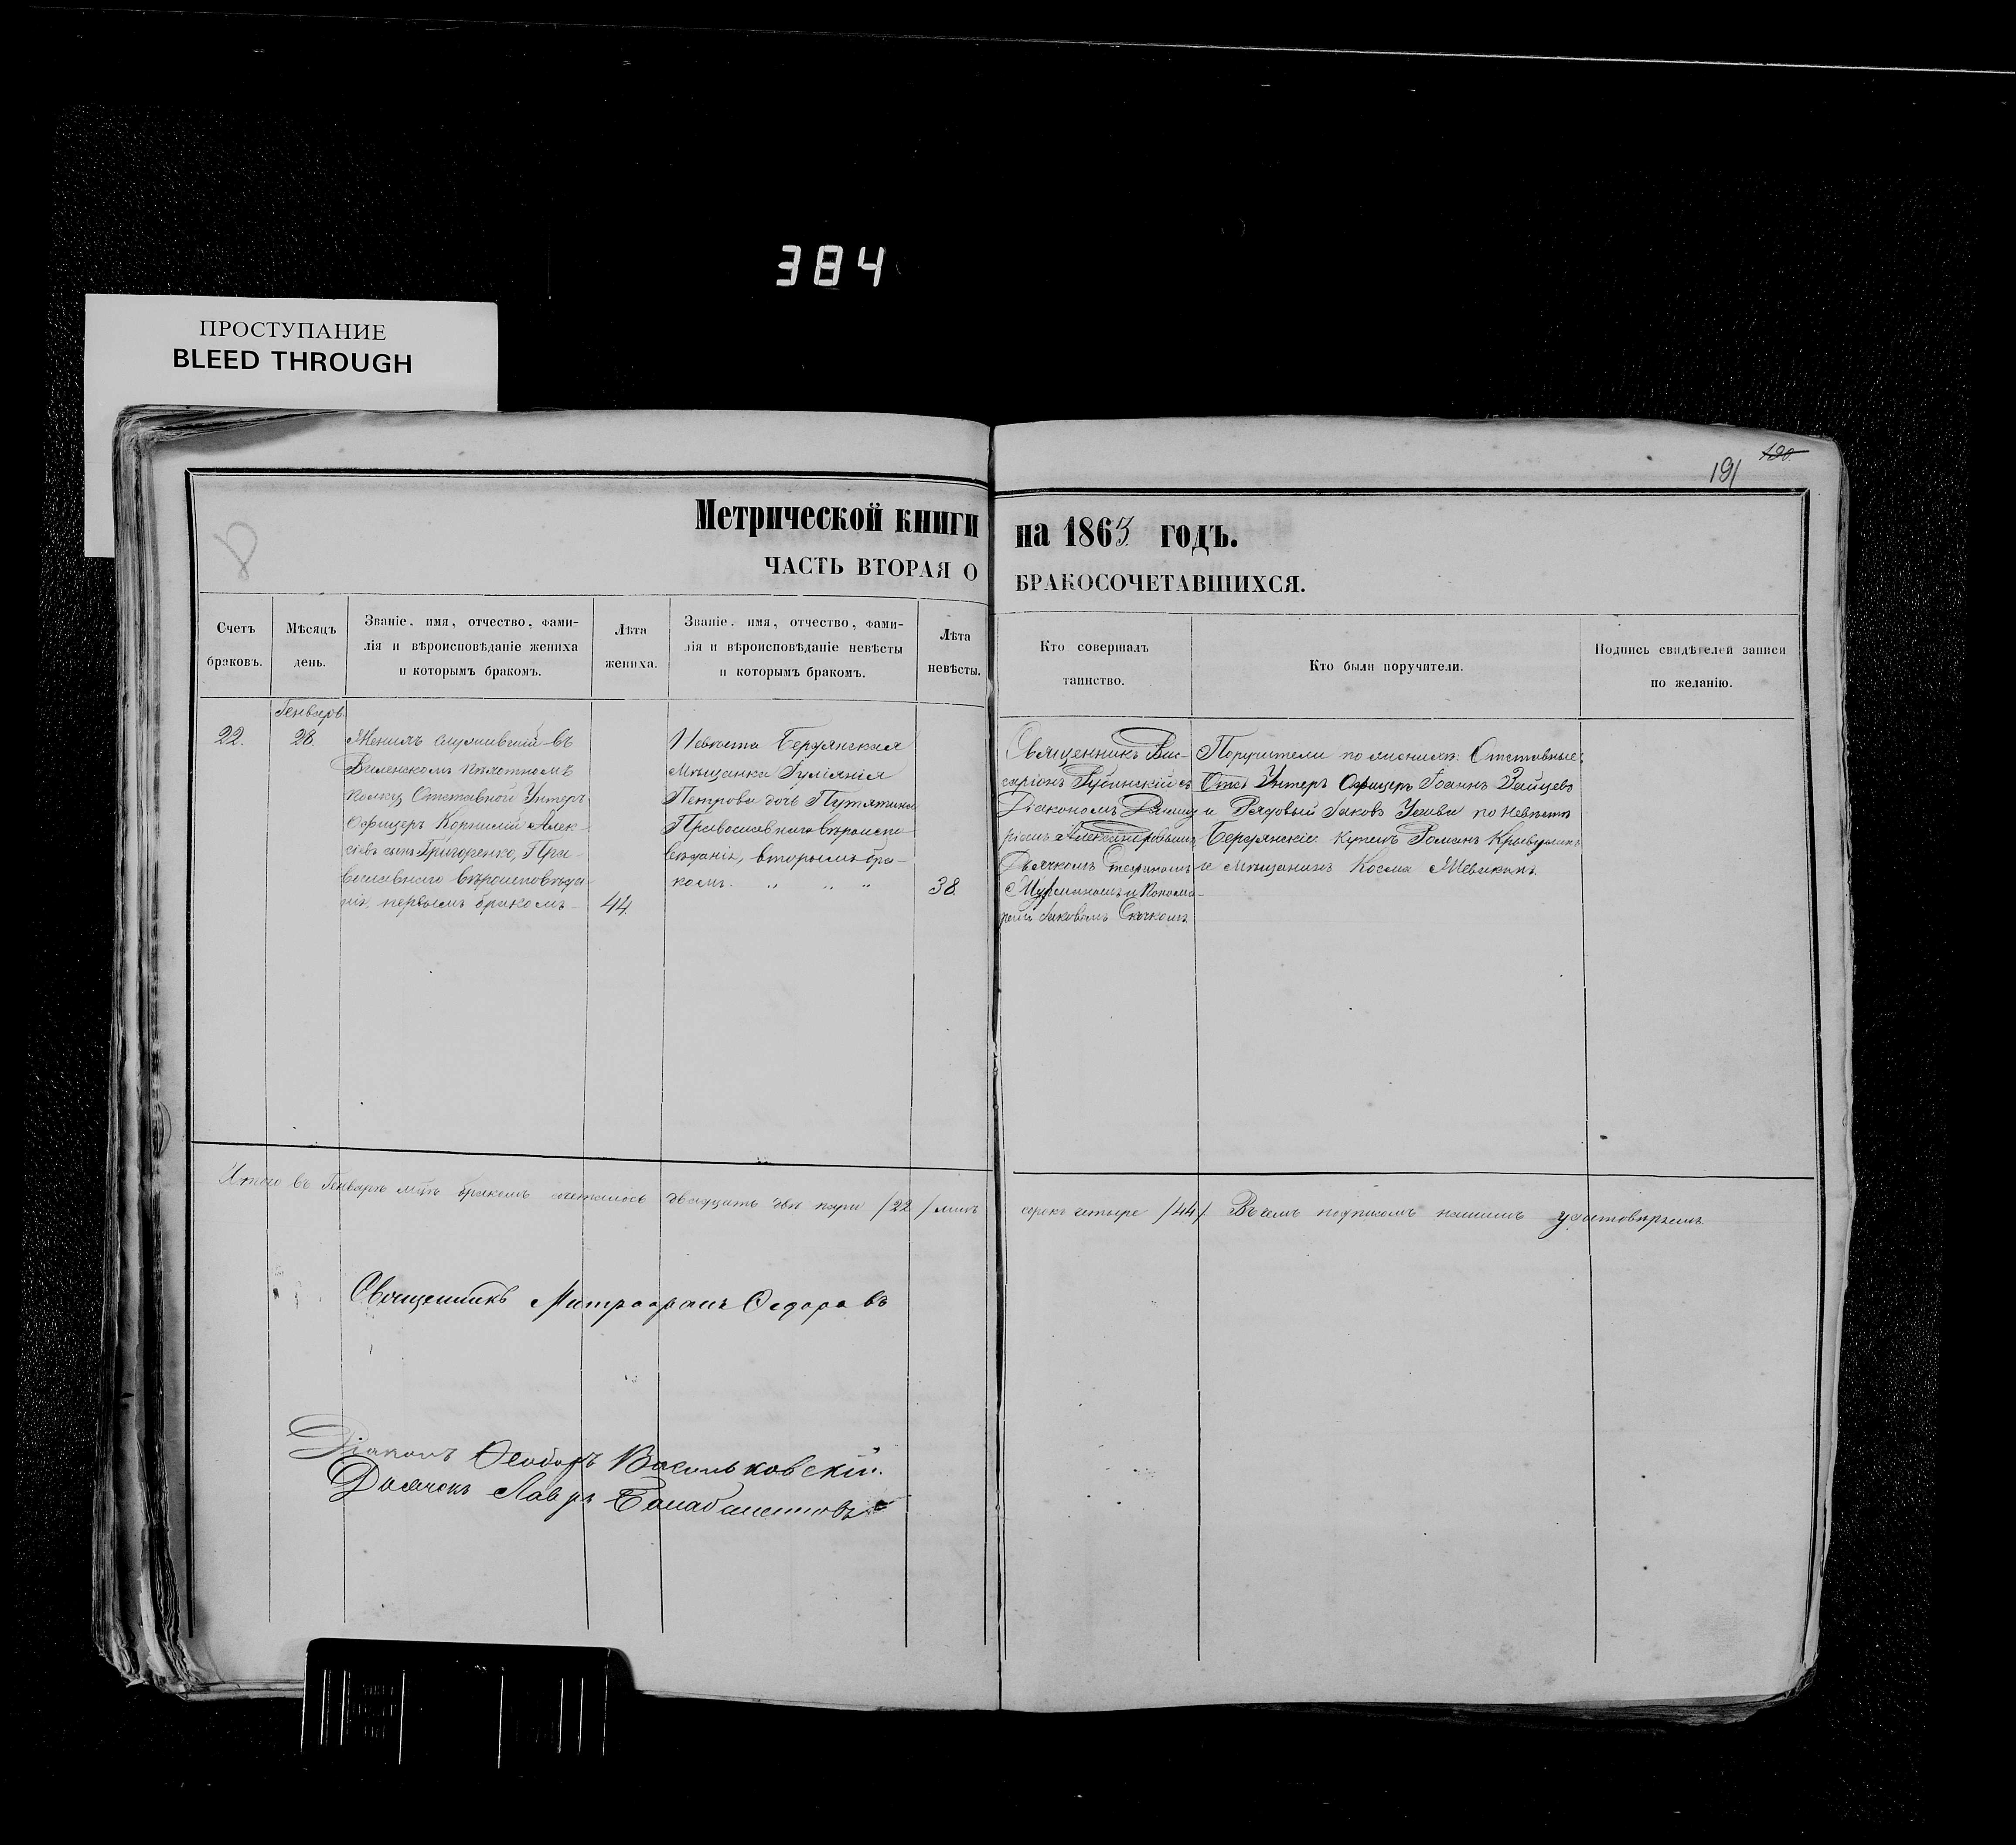 384
ПРОСТУПАНИЕ
BLEED THROUGH
191
190
Метрической книги на 1863 годъ.
ЧАСТЬ ВТОРАЯ О БРАКОСОЧЕТАВШИХСЯ.
Счетъ браковъ.
Мѣсяцъ день.
Званіе, имя, отчество, фами-
лія и вѣроисповѣданіе жениха
и которымъ бракомъ.
Лѣта жениха.
Званіе, имя, отчество, фами-
лія и вѣроисповѣданіе невѣсты
и которымъ бракомъ.
Лѣта невѣсты.
Кто совершалъ таинство.
Кто были поручители.
Подпись свидѣтелей записи
по желанію.
22.
Генварь
28.
Женихъ служившій въ
Виленскомъ пѣхотномъ
полку Отставной Унтеръ
Офицеръ Корнилій Алек-
сіевъ сынъ Григоренко, Пра-
вославнаго вѣроисповѣда
нія, первымъ бракомъ
44.
Невѣста Бердянская
мѣщанка Іуліанія
Петрова дочь Путятина
Православнаго вѣроиспо
вѣданія, вторымъ бра-
комъ. „ „ „
38
Священникъ Вис-
саріонъ Рубинскій съ
Діакономъ
Александровымъ
Дьячкомъ Стефаномъ
и Понома-
ремъ Іаковомъ Скачкомъ
Поручители по женихѣ: Отставные:
Унтеръ Офицеръ Іоаннъ Зайцевъ
и Рядовый Іаковъ по невѣстѣ
Бердянскіе купецъ Романъ
и мѣщанинъ Косма
Итого въ Генварѣ мцѣ бракомъ сочеталось двадцать двѣ пары /22/ лицъ сорокъ четыре /44/. Въ чемъ подписомъ нашимъ удостовѣряемъ.
Священникъ Митрофанъ Ѳедоровъ
Діаконъ Ѳеодоръ Васильковскій.
Дьячокъ Лавръ